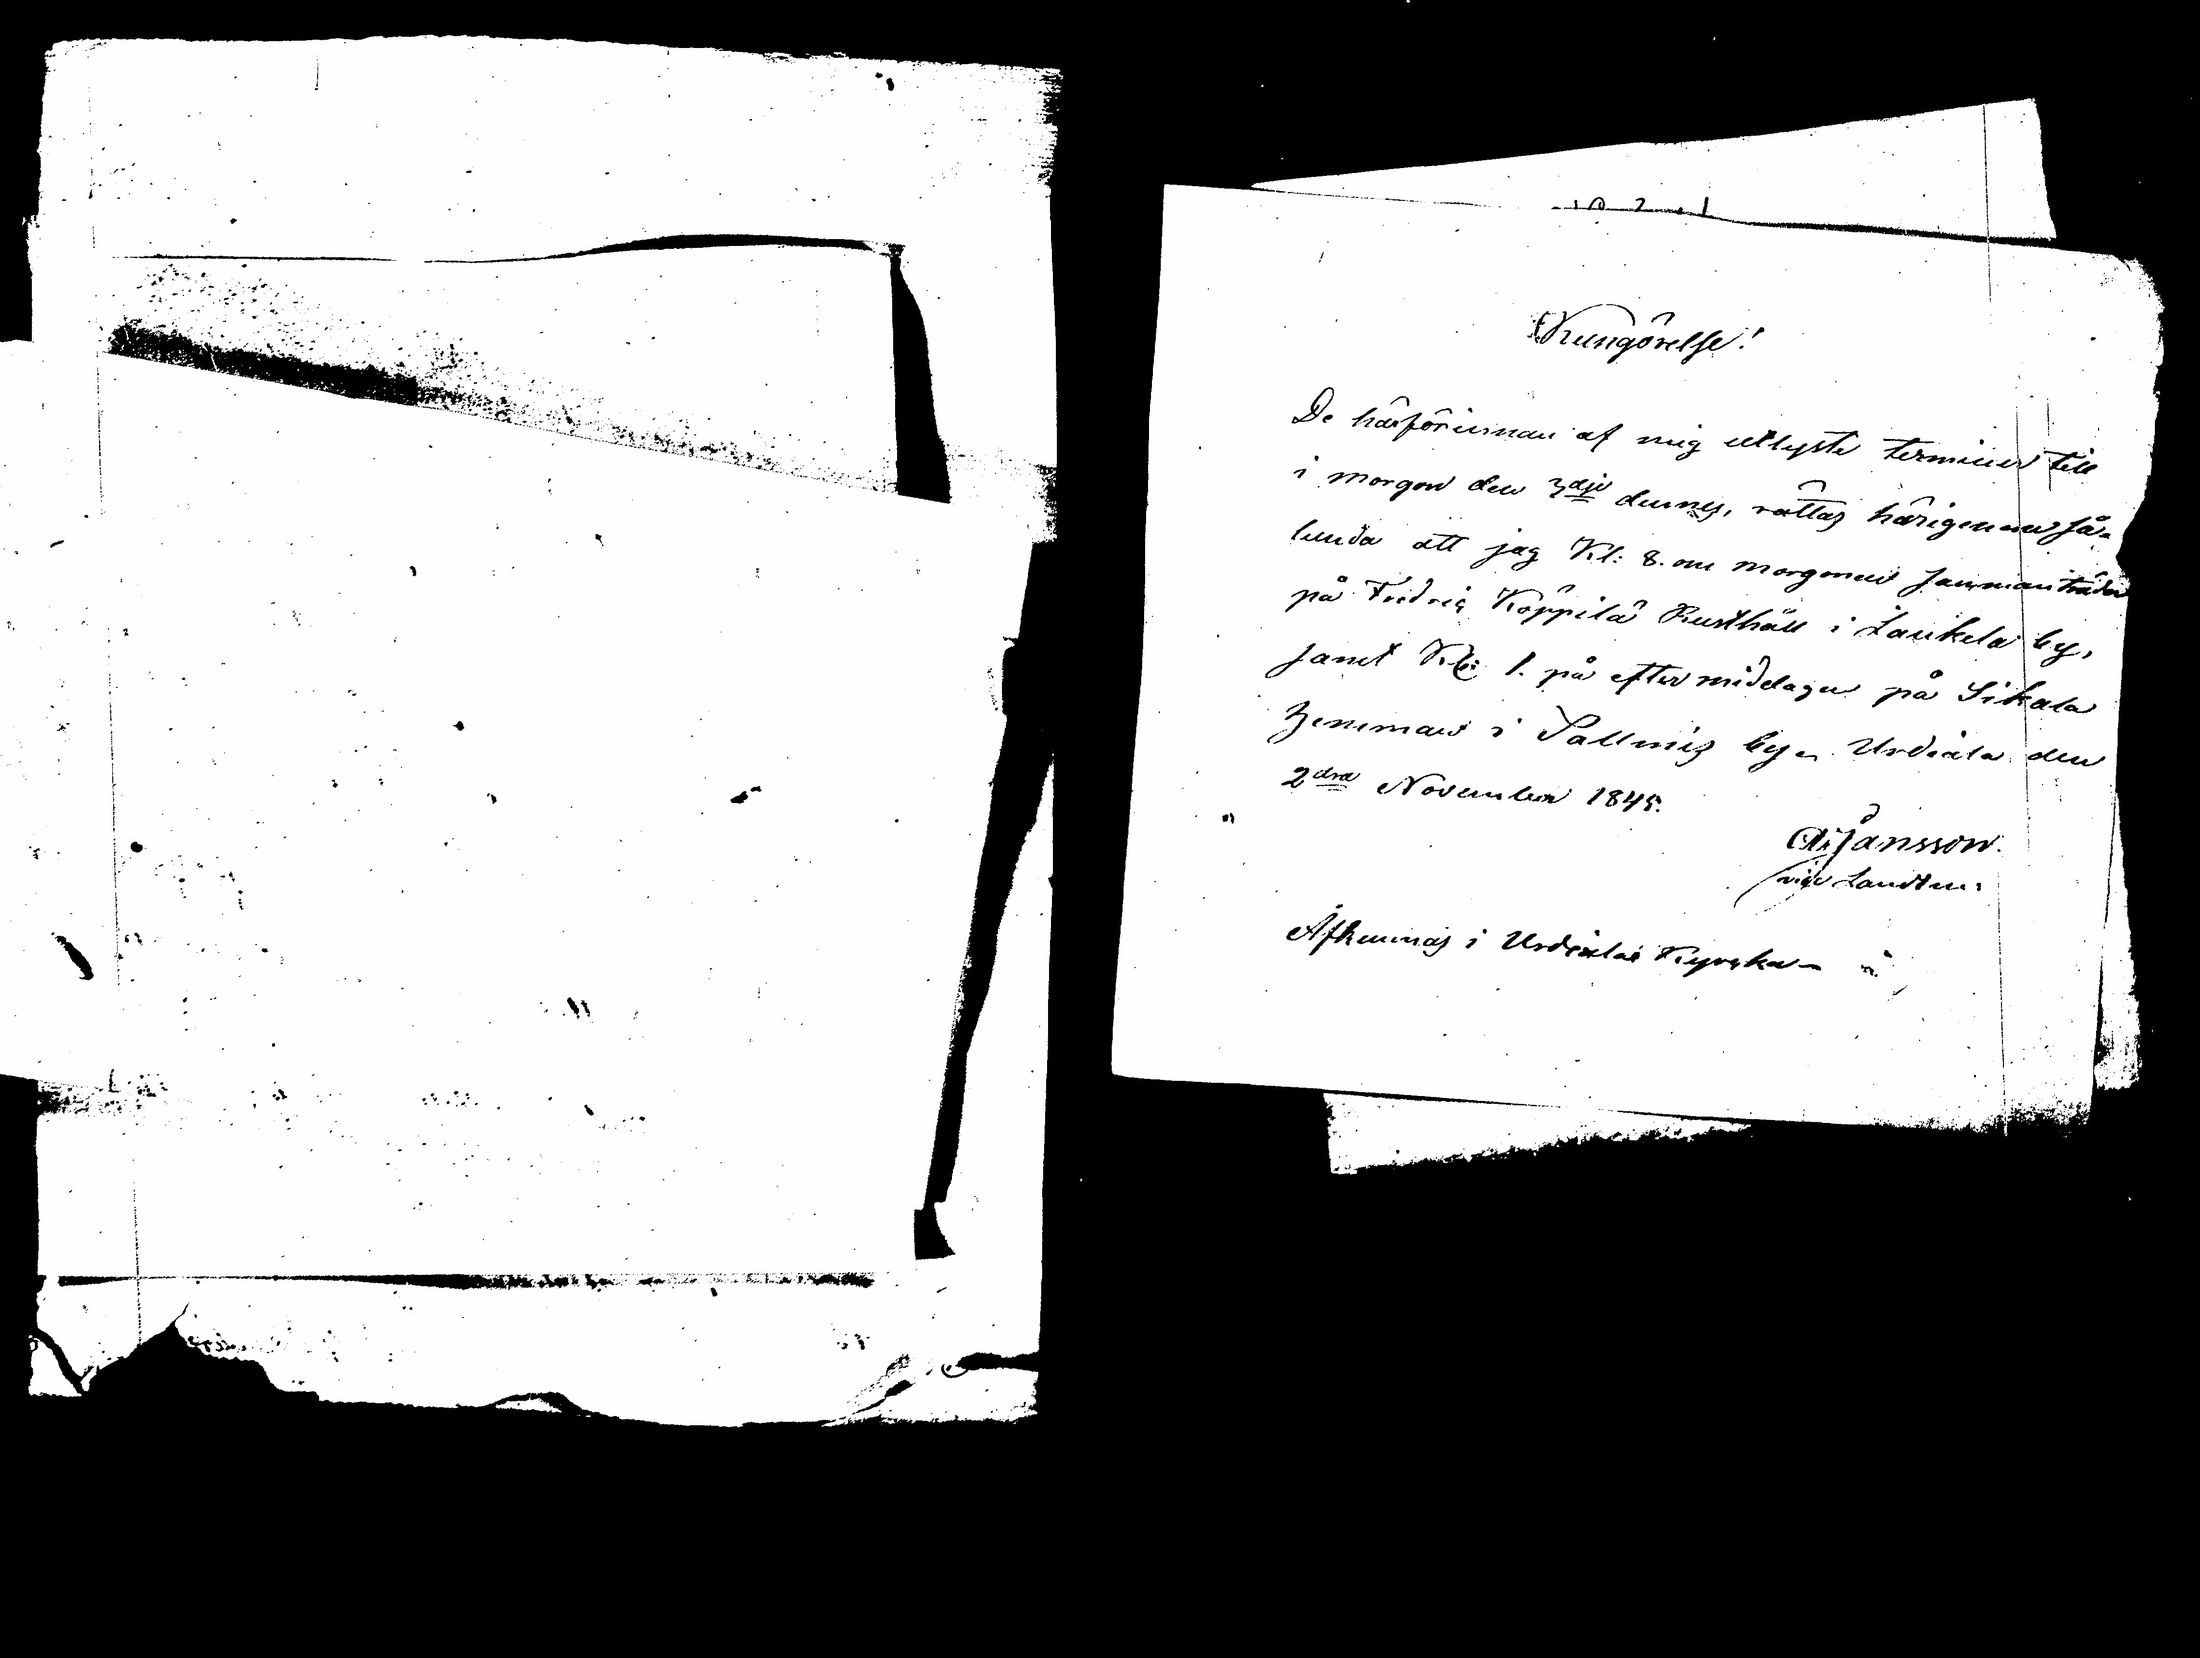 Kungörelse!
De härförinnan af mig utlyste terminer till
i morgon den 3dje dennes, rättas härigenom så-
lunda att jag Kl: 8. om morgonen sammanträder
på Fredric Köppilä Rusthåll i Laukela by,
samt Kl: 1. på eftermiddagen på Sikala
hemman i Sallmis by. Urdiala den
2dra November 1845.
A. Jansson.
vice Landtm:
Afkunnas i Urdiala Kyrka